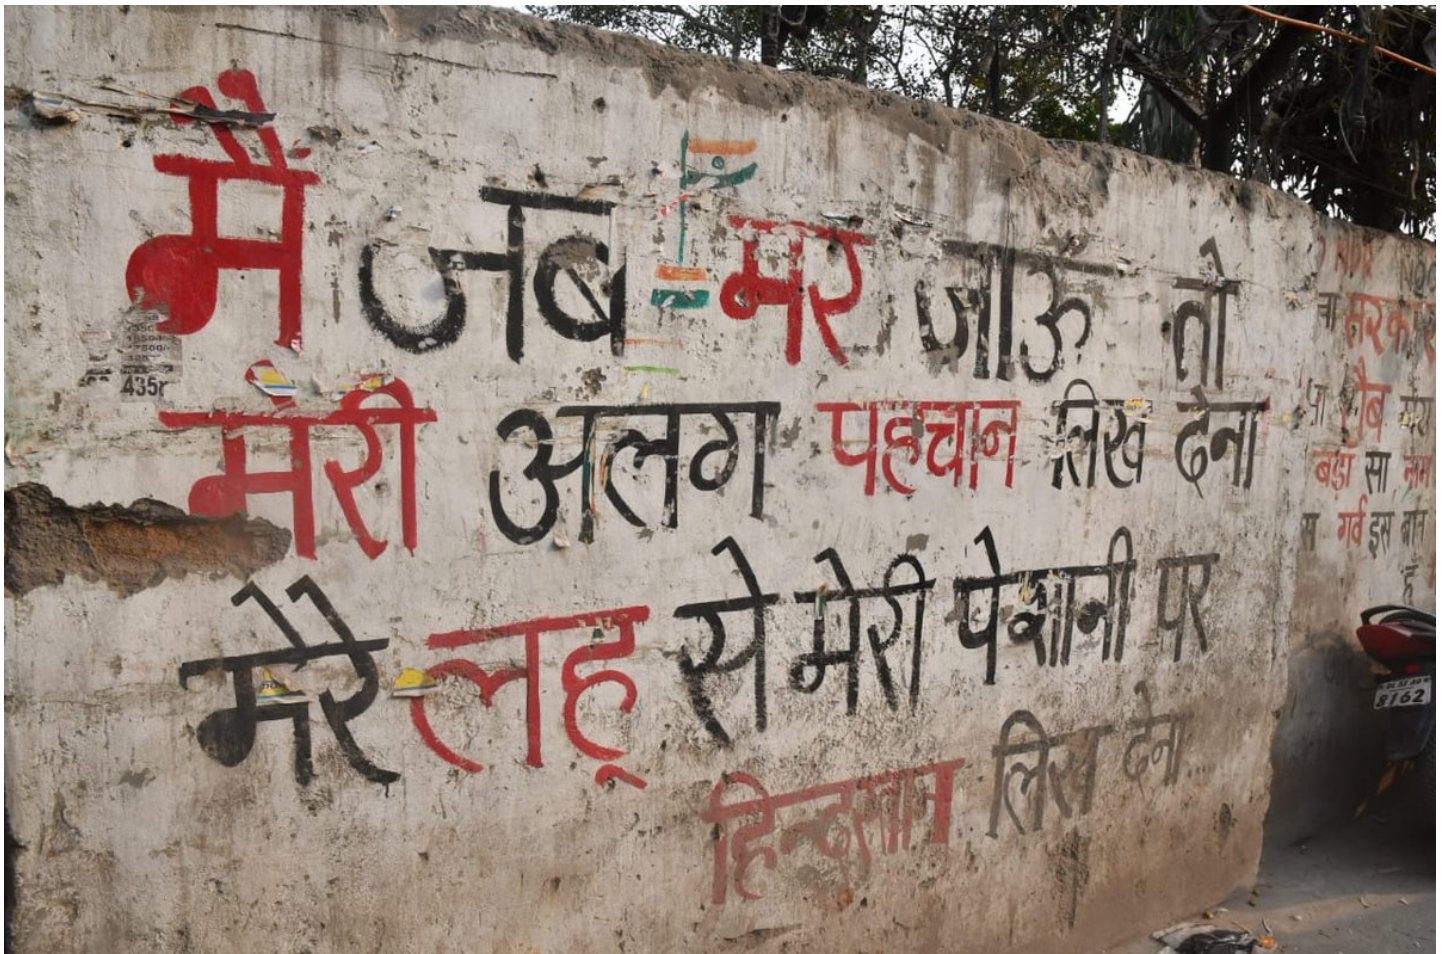 मैं जब मर जाऊ तो
मेरी अलग पहचान लिख देना
मेरे लहू से मेरी पेशानी पर
हिन्दुस्तान लिख देना....
435r
सरकार
बड़ा सा नाम
गर्व इस बात
है
8162